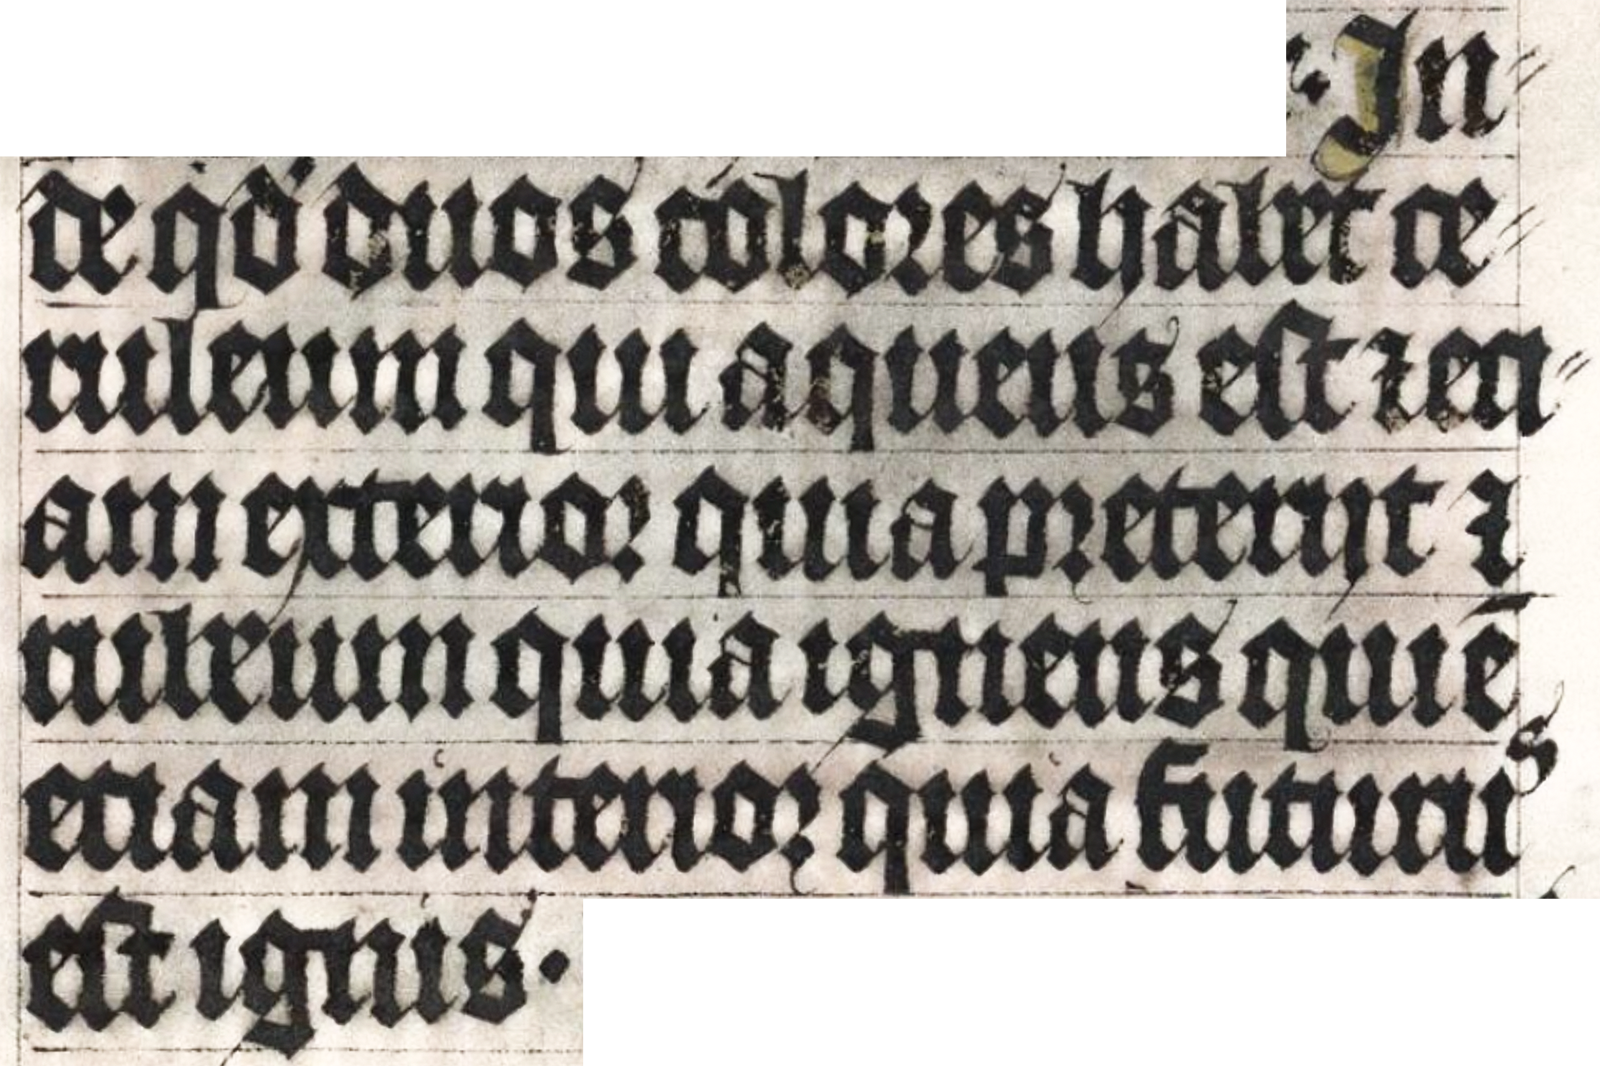 · In⸗
de qd duos colores habet ce⸗
ruleum qui aqueus est ⁊ eci⸗
am exterior quia preterijt ⁊
ruleum quia igneus qui ē
eciam interior quia futurus
est ignis·